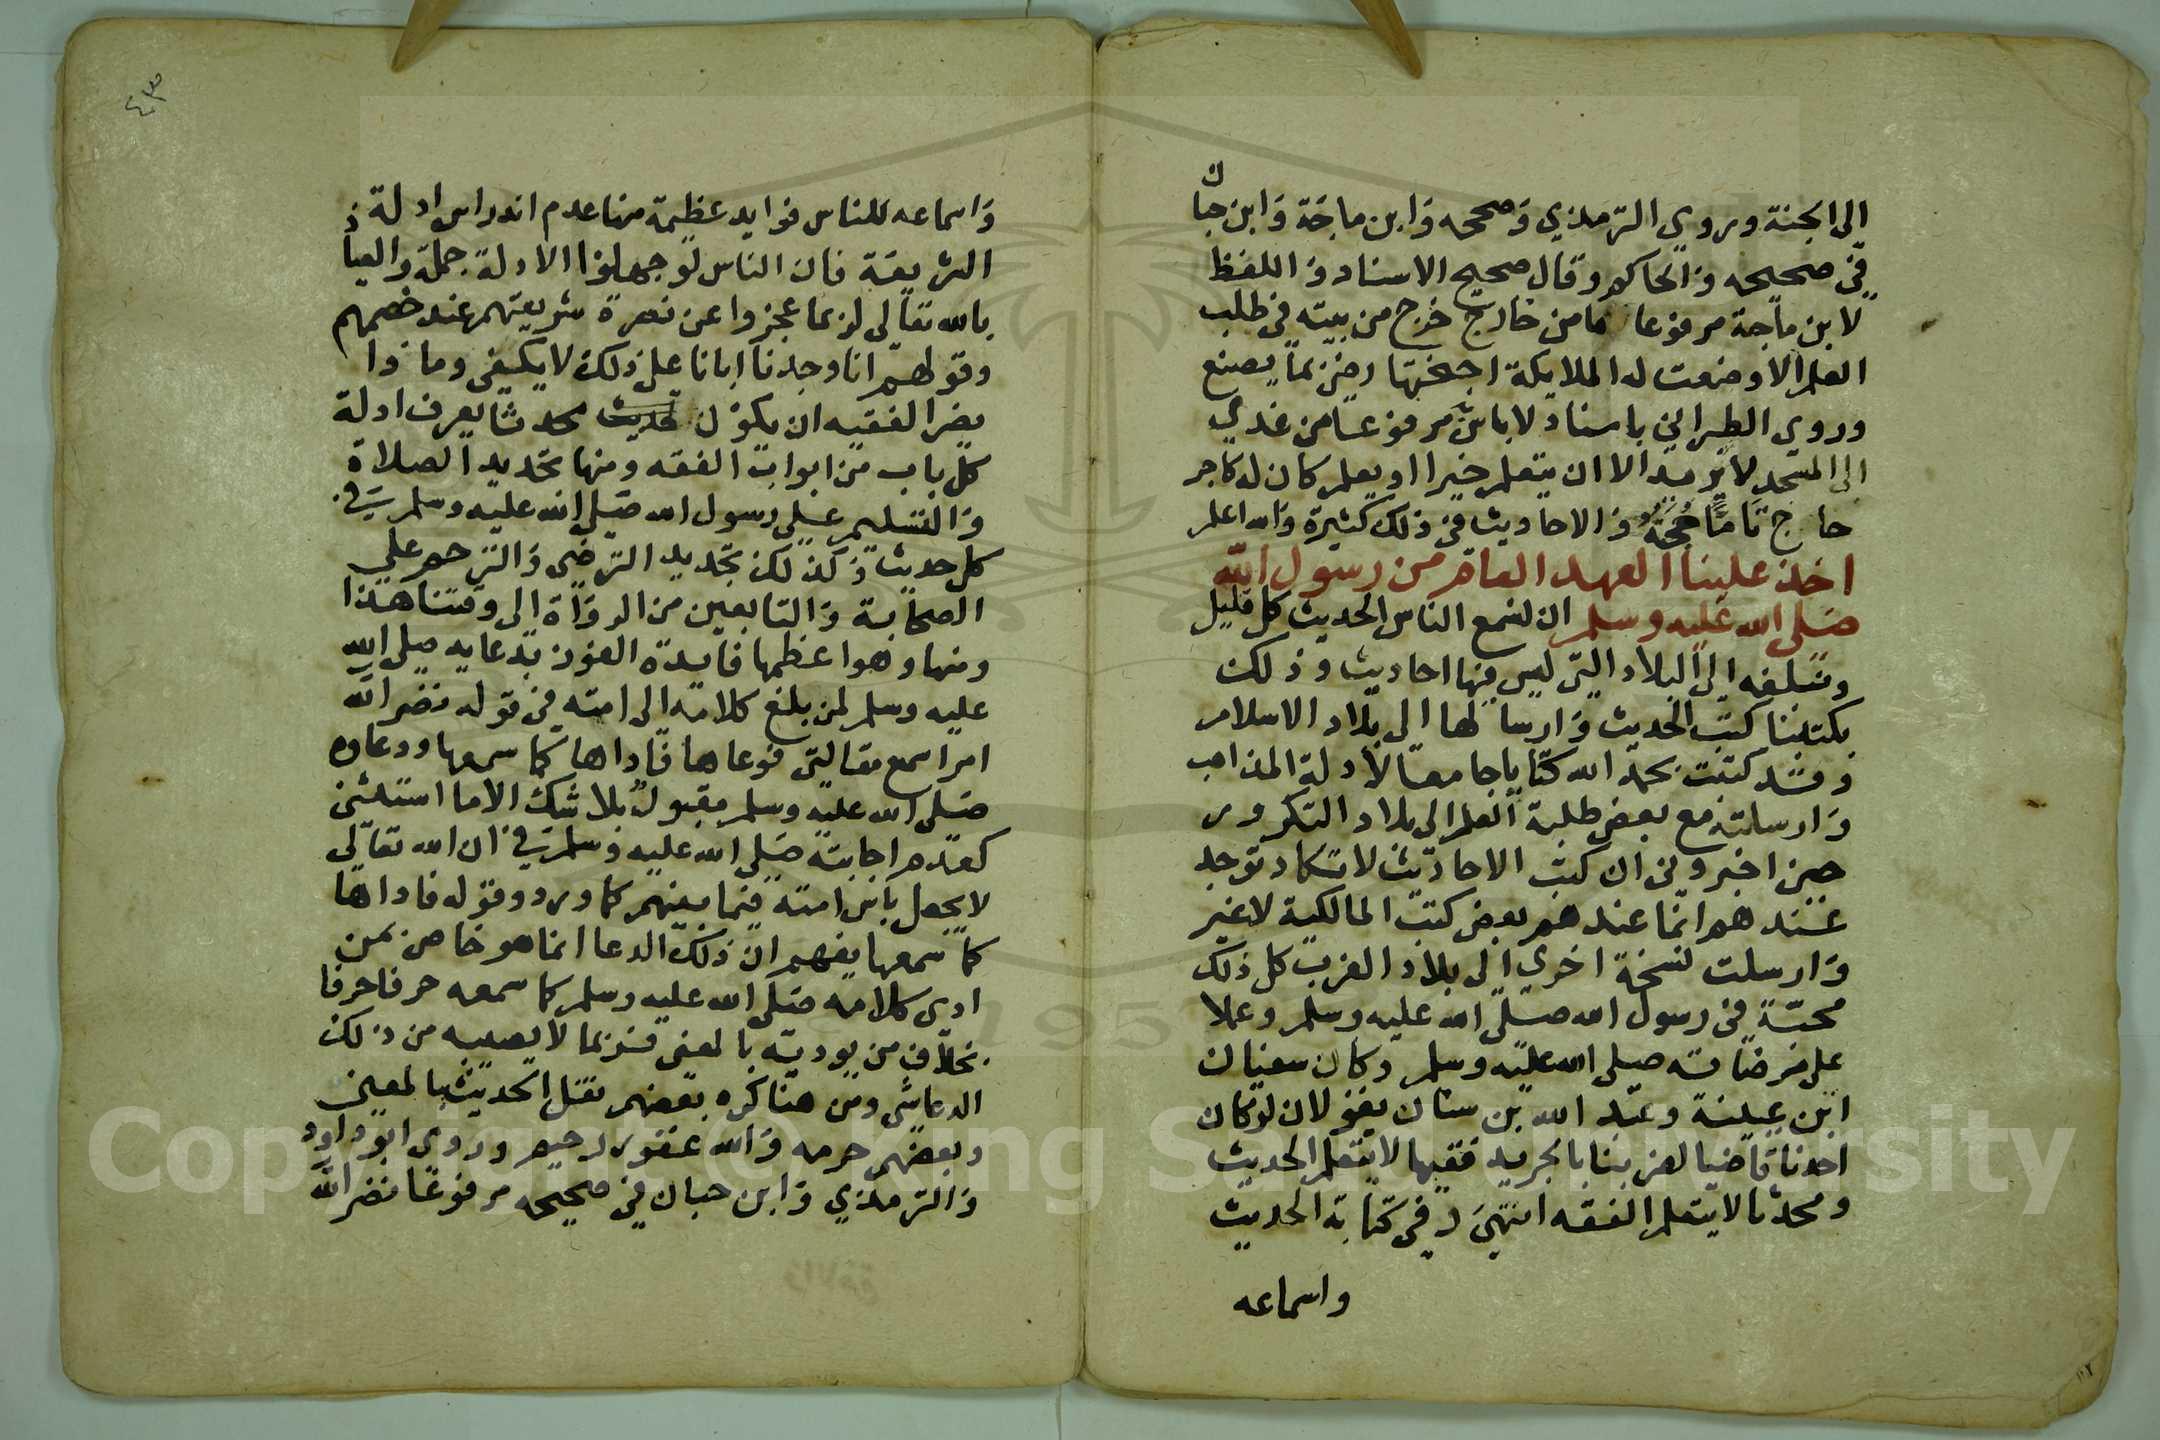 الى الجنة وروي الترمذي وصححه وابن ماجة وابن حبان
في صحيحه والحاكم وقال صحيح الاسناد واللفظ
لابن ماجة مرفوعا ما من خارج خرج من بيته في طلب
العلم الا وضعت له الملايكة اجنحتها رضى بما يصنع
وروى الطبراني باسناد لا باس به مرفوعا من غدي
الى المسجد لا يريد الا ان يتعلم خيرا او يعلم كان له كاجر
حاج تاما حجه والاحاديث في ذلك كثيرة والله اعلم
اخذ علينا العهد العام من رسول الله
صلى الله عليه وسلم ان نسمع الناس الحديث كل قليل
ونبلغه الى البلاد التي ليس فيها احاديث وذلك
بكتبنا كتب الحديث وارسالها الى بلاد الاسلام
وقد كتبت بحمد الله كتابا جامعا لادلة المذاهب
وارسلته مع بعض طلبة العلم الى بلاد التكرور
حين اخبروني ان كتب الاحاديث لا تكاد توجد
عندهم انما عندهم بعض كتب المالكية لا غير
وارسلت نسخة اخرى الى بلاد الغرب كل ذلك
محبة في رسول الله صلى الله عليه وسلم وعملا
على مرضاته صلى الله عليه وسلم وكان سفيان
ابن عيينة وعبد الله بن سنان يقولان لو كان
احدنا قاضيا لضربنا بالجريد فقيها لا يتعلم الحديث
ومحدثا لا يتعلم الفقه انتهى وفي كتابة الحديث
واسماعه
٤٣
واسماعه للناس فوايد عظيمة منها عدم اندراس ادلة
الشريعة فان الناس لو جهلوا الادلة جملة والعياذ
بالله تعالى لربما عجزوا عن نصرة شريعتهم عند خصمهم
وقولهم انا وجدنا اباءنا على ذلك لا يكفي وماذا
يضر الفقيه ان يكون محدثا يعرف ادلة
كل باب من ابواب الفقه ومنها تجديد الصلاة
والتسليم على رسول الله صلى الله عليه وسلم في
كل حديث وكذلك تجديد الترضي والترحم على
الصحابة والتابعين من الرواة الى وقتنا هذا
ومنها وهو اعظمها فايدة الفوز بدعايه صلى الله
عليه وسلم لمن بلغ كلامه الى امته في قوله نضر الله
امرا سمع مقالتي فوعاها فاداها كما سمعها ودعاوه
صلى الله عليه وسلم مقبول بلا شك الا ما استثنى
كعدم اجابته صلى الله عليه وسلم في ان الله تعالى
لا يجعل باس امته فيما بينهم كما ورد وقوله فاداها
كما سمعها يفهم ان ذلك الدعا انما هو خاص بمن
ادى كلامه صلى الله عليه وسلم كما سمعه حرفا حرفا
بخلاف من يوديه بالمعنى فربما لا يصيبه من ذلك
الدعا شي ومن هنا كره بعضهم نقل الحديث بالمعنى
وبعضهم حرمه والله غفور رحيم وروى ابو داود
والترمذي وابن حبان في صحيحه مرفوعا نضر الله
Copyright © King Saud University